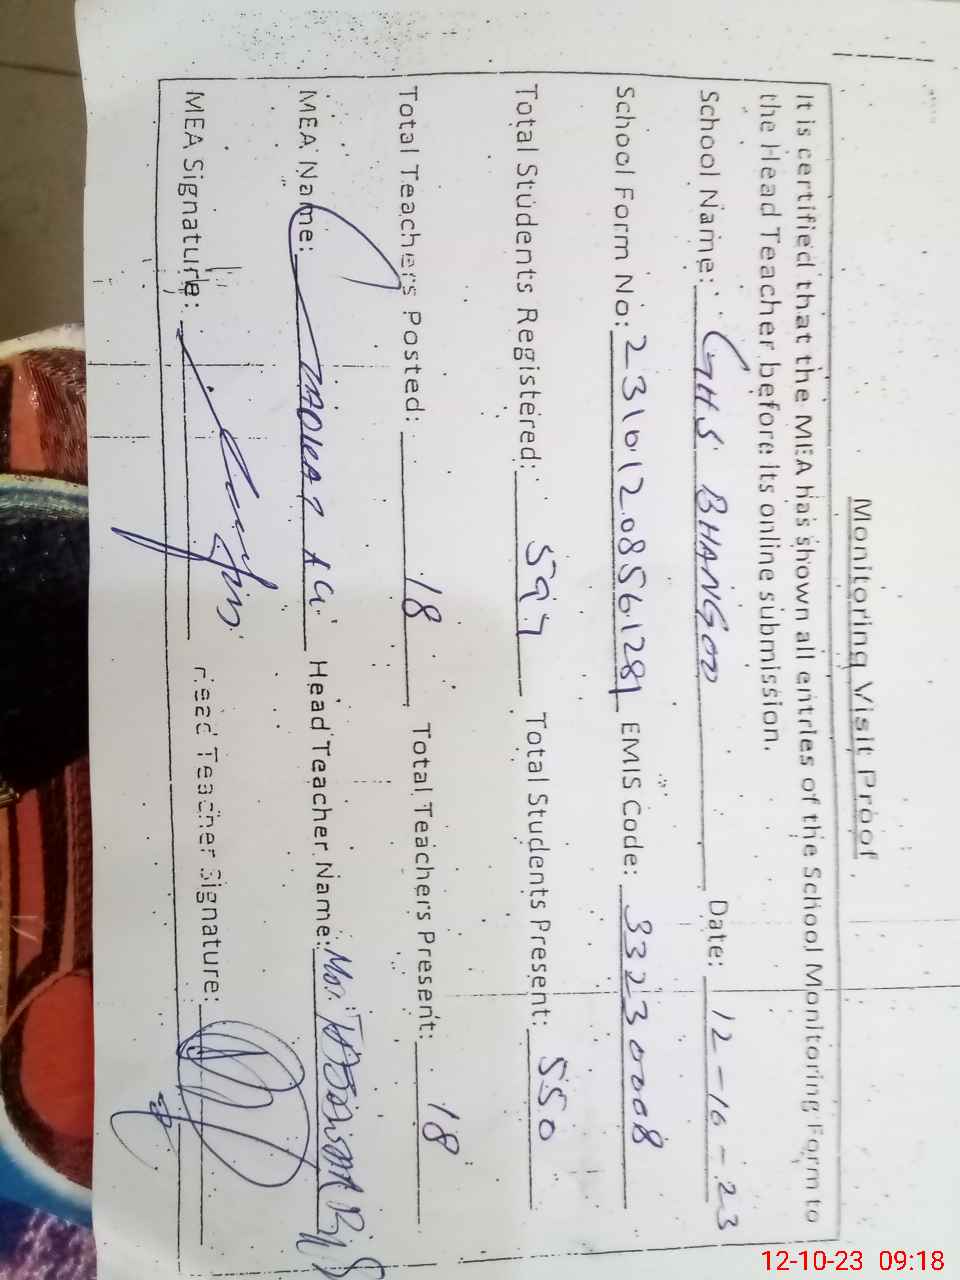 Monitoring Visit Proof
It is certified that the MEA has shown all entries of the School Monitoring Form to
the Head Teacher before its online submission.
School Name: GHS BHANGOO Date: 12-10-23
School Form No: 23101208561281 EMIS Code: 33230008
Total Students Registered: 597 Total Students Present: 550
Total Teachers Posted: 18 Total Teachers Present: 18
MEA Name: Head Teacher Name:
MEA Signature: Head Teacher Signature:
12-10-23 09:18